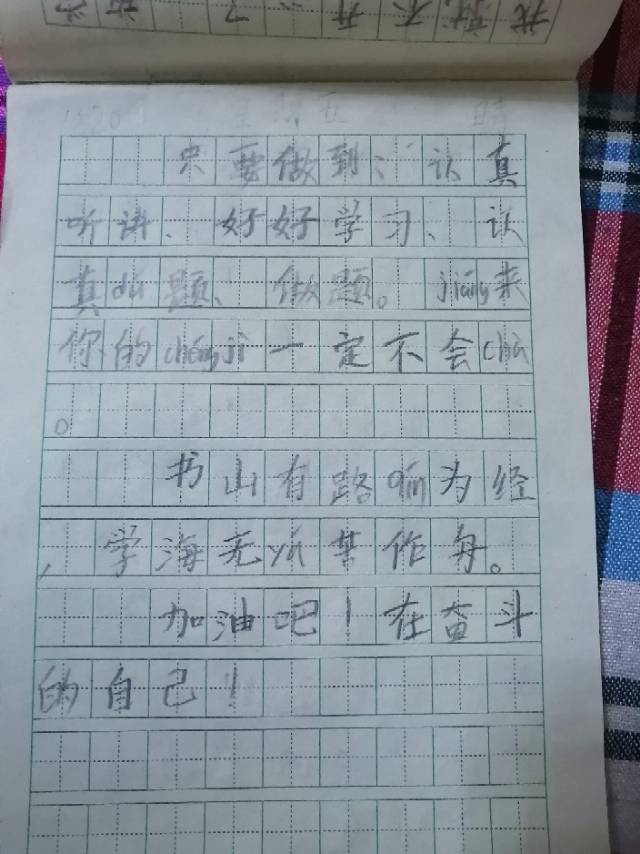 我就不开了
1209 星期五 晴
只要做到：认真
听讲、好好学习、认
真dú题、做题。jiāng来
你的chéngjì一定不会chà
。
书山有路qín为经
，学海无yá苦作舟。
加油吧！在奋斗
的自己！